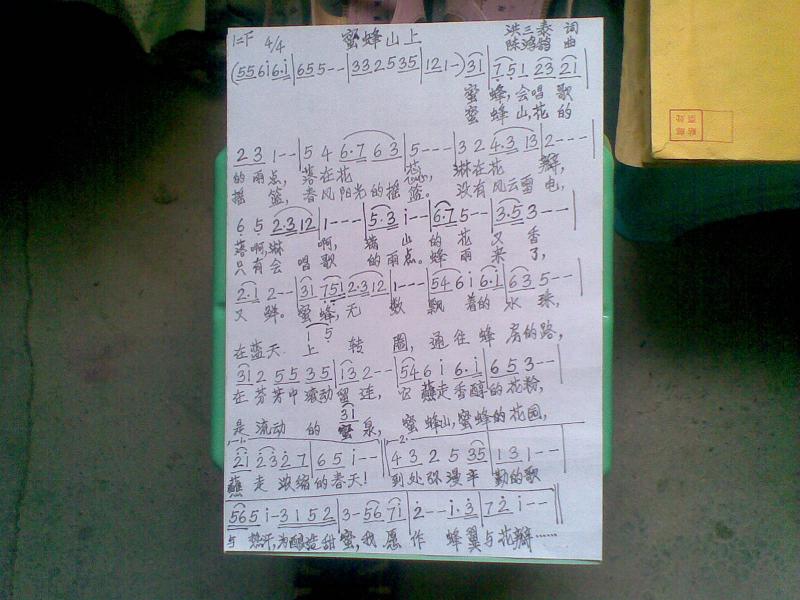 1=F 4/4 蜜蜂山上 洪三泰 词
陈鸿鹄 曲
(5561̇61̇|655--|332535|121-)31|751 23 21|
蜜蜂,会唱歌
蜜蜂山,花的
23 1--|5 4 6·7 63|5---|3 2 4·3 13|2---|
的雨点,落在花蕊,淋在花瓣,
摇篮,春风阳光的摇篮.没有风云雷电,
6 5 2·312|1---|5·3 i--|6·7 5--|3·5 3--|
落啊,淋啊,满山的花又香
只有会唱歌的雨点.蜂雨来了,
2·1 2--|31 751 2·312|1---|546i 6·i|63 5--|
又鲜。蜜蜂,无数飘着的水珠,
1 5
在蓝天上转圈,通往蜂房的路,
312 5535|i32--|546i 6·i|653--|
在芬芳中流动留连,它蘸走香醇的花粉,
31
是流动的蜜泉,蜜蜂山,蜜蜂的花园,
1. 2.
2i 2327|65i--|4325 35|131--|
蘸走浓缩的春天!到处弥漫辛勤的歌
565i-3152|3-56 7i|2--i·3|72i--‖
与热汗,为酿造甜蜜,我愿作蜂翼与花瓣……